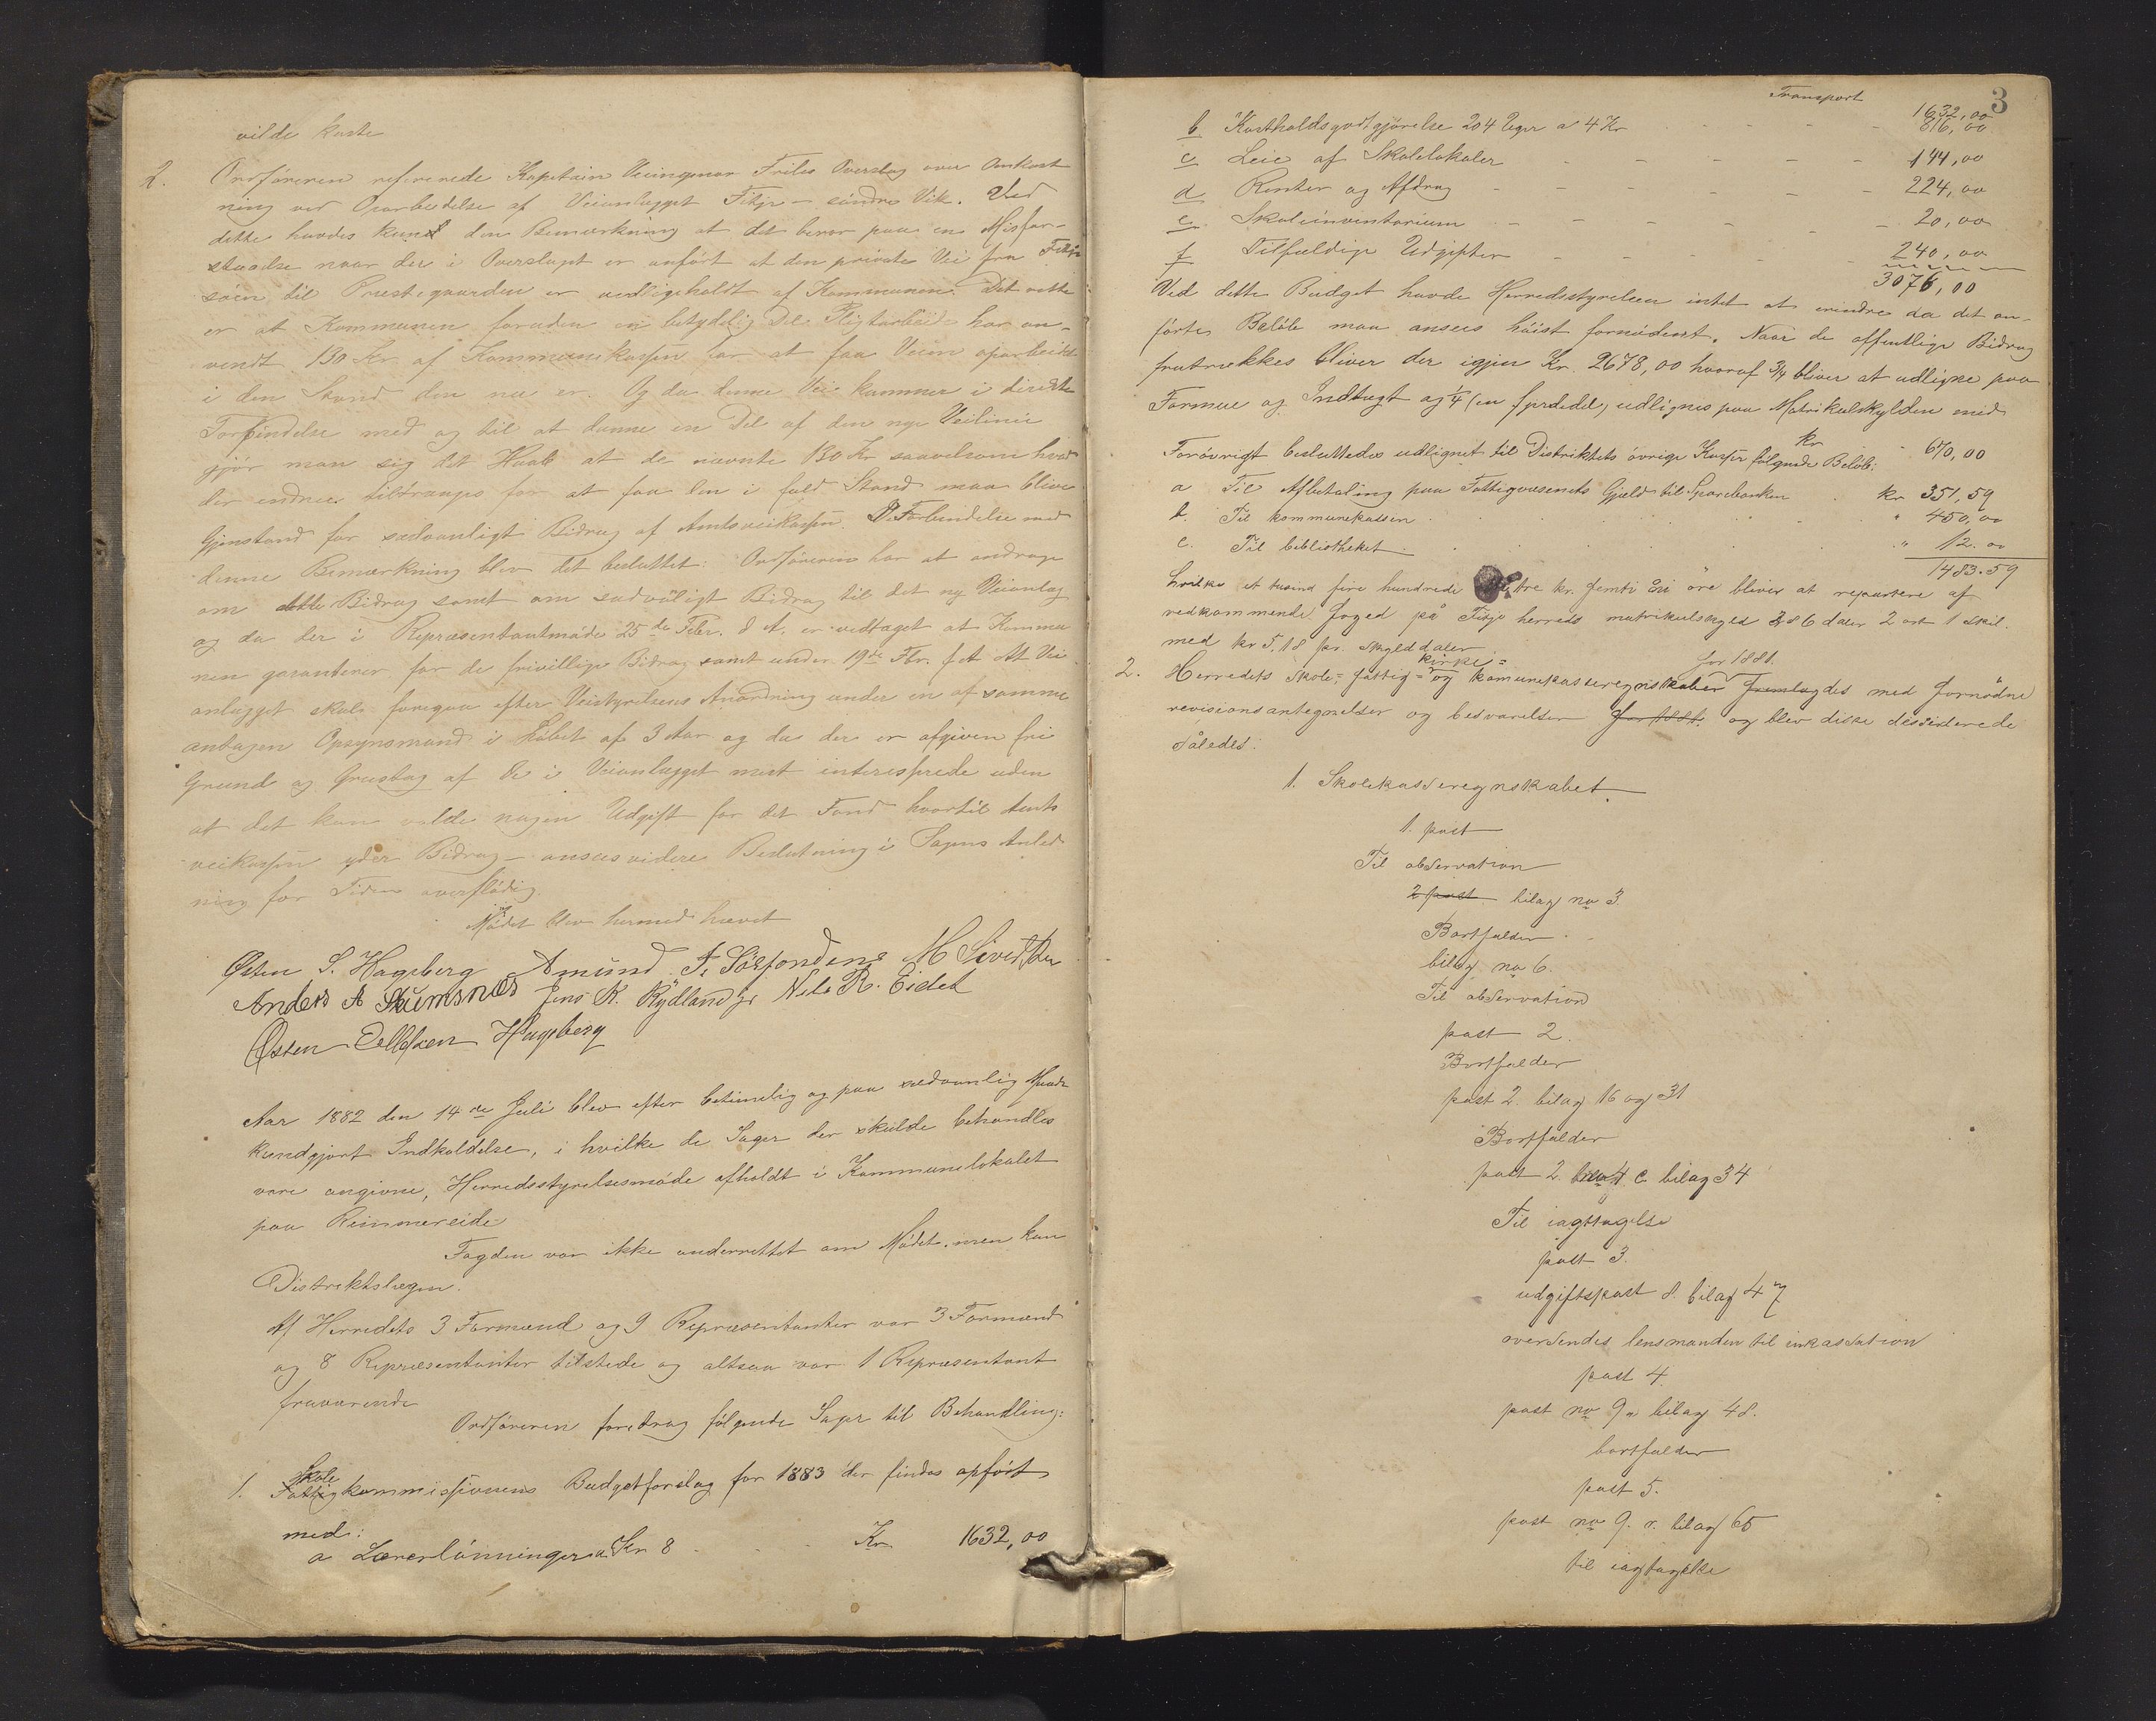 vilde koste
2. Ordføreren refererede Kapitain Veiingeniør Friles Overslag over Omkost
ning ved Oparbeidelse af Veianlægget Fitje – søndre Vik. Ved
dette havdes kund den Bemærkning at det beror paa en Misfor-
staaelse naar der i Overslaget er anført at den private Vei fra Fitje
søen til Præstegaarden er vedligeholdt af Kommunen. Det rette
er at Kommunen foruden en betydelig Del Pligtarbeide har an-
vendt 130 Kr af Kommunekassen for at faa Veien oparbeidet
i den Stand den nu er. Og da denne Vei kommer i direkte
Forbindelse med og til at danne en Del af den nye Veilinie
gjør man sig det Haab at de nævnte 130 Kr saavelsom hvad
der endnu tiltrænges for at faa den i fuld Stand maa blive
Gjenstand for sædvanligt Bidrag af Amtsveikassen. I Forbindelse med
denne Bemærkning blev det besluttet: Ordføreren har at andrage
om dette Bidrag samt om sædvanligt Bidrag til det ny Veianlæg
og da der i Repræsentantmøde 25de Febr. d A. er vedtaget at Kommu
nen garanterer for de frivillige Bidrag samt under 19de Fbr. f A at Vei
anlægget skal foregaa efter Veistyrelsens Anordning under en af samme
antagen Opsynsmand i Løbet af 3 Aar og da der er afgiven fri
Grund og Grustag af de i Veianlægget mest interesserede uden
at det kan volde nogen Udgift for det Fond hvortil Amts
veikassen yder Bidrag – ansees videre Beslutning i Sagens Anled
ning for Tiden overflødig.
Mødet blev hermed hævet
Østen S. Hageberg Amund J. Sørfonden M Sivertsen
Anders A Skumsnæs Jens K. Rydland jr Nils R. Eidet
Østen Ellefsen Hageberg
Aar 1882 den 14de Juli blev efter betimelig og paa sædvanlig Maade
kundgjort Indkaldelse, i hvilke de Sager der skulde behandles
vare angivne, Herredsstyrelsesmøde afholdt i Kommunelokalet
paa Rimmereide
Fogden var ikke underrettet om Mødet, men kun
Distriktslægen.
Af Herredets 3 Formænd og 9 Repræsentanter var 3 Formænd
og 8 Repræsentanter tilstede og altsaa var 1 Repræsentant
fraværende
Ordføreren foredrog følgende Sager til Behandling:
1. Skole
Fattigkommissionens Budgetforslag for 1883 der findes opført
med:
a Lærerlønninger a Kr 8 Kr. 1632,00
3
Transport 1632,00
b Kostholdsgodtgjørelse 204 Uger a 4 Kr 816,00
c Leie af Skolelokaler 144,00
d Renter og Afdrag 224,00
e Skoleinventarium 20,00
f Tilfældige Udgifter 240,00
3076,00
Ved dette Budget havde Herredsstyrelsen intet at erindre da det an-
førte Beløb maa ansees høist fornødent. Naar de offentlige Bidrag
fratrækkes bliver der igjen Kr. 2678,00 hvoraf 3/4 bliver at udligne paa
Formue og Indtægt og 1/4 (en fjerdedel) udlignes paa Matrikulskylden med
kr 670,00
Forøvrigt besluttedes udlignet til Distriktets øvrige Kasser følgende Beløb:
a Til Afbetaling paa Fattigvæsenets Gjæld til Sparebanken kr 351,59
b. Til kommunekassen " 450,00
c. Til bibliotheket " 12.00
1483.59
hvilke et tusind fire hundrede tre kr. femti øre bliver at repartere af
vedkommende foged på Fitje herreds matrikulskyld 286 daler 2 ort 1 skil.
med kr 5,18 pr. skylddaler
2. Herredets skole-, fattig- kirke- og kommunekasseregnskaber for 1881. fremlagdes med fornødne
revisionsantegnelser og besvarelser for 1881. og blev disse desiderede
således:
1. Skolekasseregnskabet.
1. post
Til observation
2 post bilag no 3.
Bortfalder
bilag no 6.
Til observation
post 2.
Bortfalder
post 2. bilag 16 og 31
Bortfalder
post 2 c bilag 34
Til iagttagelse
post 3.
udgiftspost 8. bilag 47
oversendes lensmanden til inkassation
post 4.
post no 9 a bilag 48.
bortfalder
post 5.
post no 9. r. bilag 65
til iagtagelse